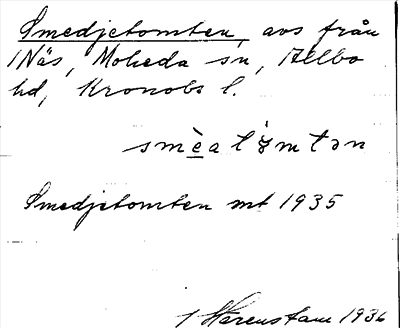 Smedjetomten, avs från
1 Näs, Moheda sn, Allbo
hd, Kronobs l.
Smedjetomten mt 1935
1936